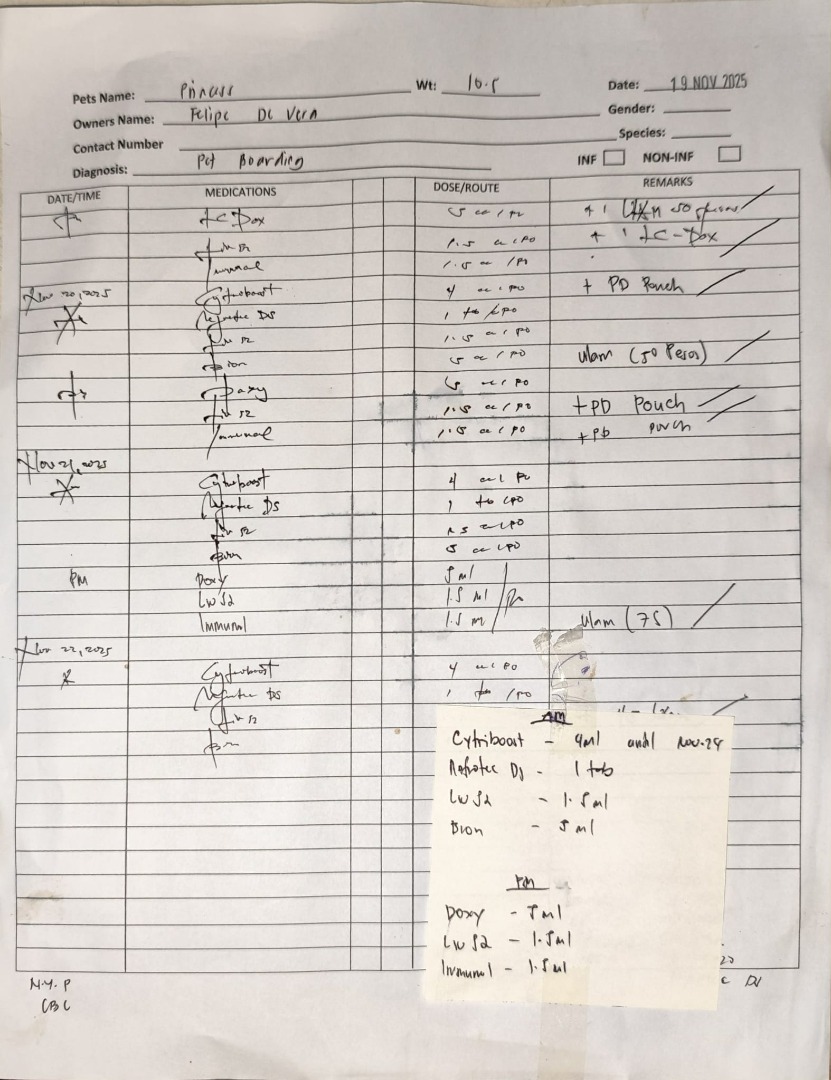 Pets Name: Princess Wt: 10.5 Date: 19 NOV 2025
Owners Name: Felipe De Vera Gender:
Contact Number Species:
Diagnosis: Pet Boarding INF NON-INF
DATE/TIME MEDICATIONS DOSE/ROUTE REMARKS
LC Dox 5 cc / PO + 1 50 pesos
Liv 52 1.5 cc / PO + 1 LC-Dox
Immunol 1.5 cc / PO
Nov 20, 2025 Cytriboost 4 cc / PO + PD Pouch
Nefrotec DS 1 tab / PO
Liv 52 1.5 cc / PO
Bion 5 cc / PO Ulam (50 Pesos)
Doxy 5 cc / PO
Liv 52 1.5 cc / PO + PD Pouch
Immunol 1.5 cc / PO + PD Pouch
Nov 21, 2025
Cytriboost 4 cc / PO
Nefrotec DS 1 tab / PO
Liv 52 1.5 cc / PO
Bion 5 cc / PO
PM Doxy 5 ml
Liv 52 1.5 ml
Immunol 1.5 ml Ulam (75)
Nov 22, 2025
Cytriboost 4 cc / PO
Nefrotec DS 1 tab / PO
Liv 52
Bion
AM
Cytriboost - 4ml until Nov. 24
Nefrotec DS - 1 tab
Liv 52 - 1.5ml
Bion - 5ml
PM
Doxy - 5ml
Liv 52 - 1.5ml
Immunol - 1.5ml
N.Y.P
CBC